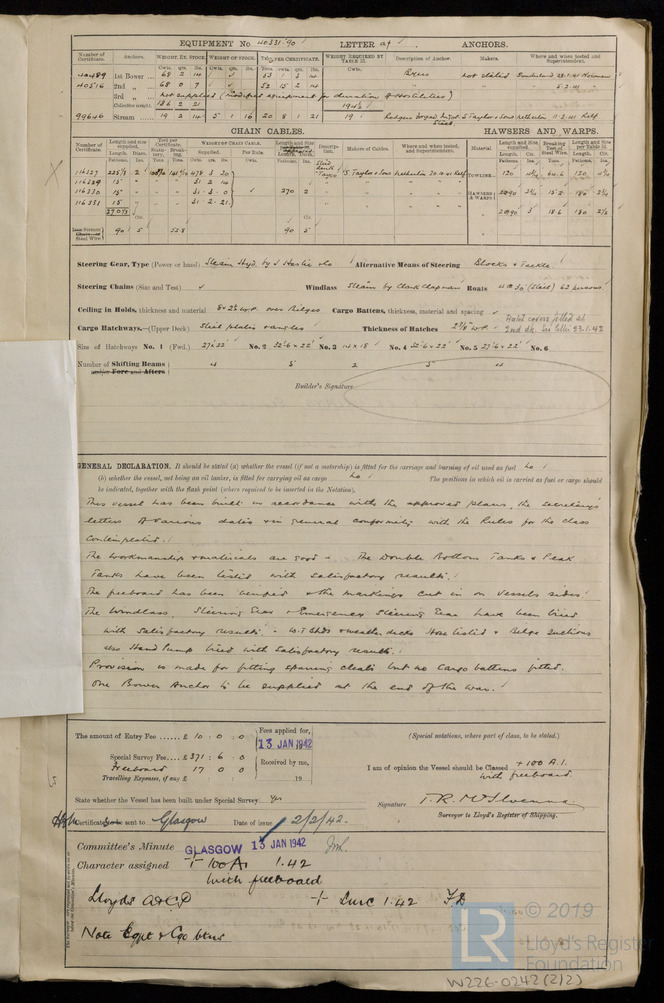 EQUIPMENT No 40331·90 LETTER a† ANCHORS.
Number of Certificate. Anchors. WEIGHT, EX. STOCK. WEIGHT OF STOCK. TEST, PER CERTIFICATE. WEIGHT REQUIRED BY TABLE 22. Description of Anchor. Makers. Where and when tested and Superintendent.
Cwts. qrs. lbs. Cwt. qrs. lbs. Tons. cwt. qrs. lbs. Cwts.
40489 1st Bower 68 2 14 53 1 3 14 Byers not stated Sunderland
40516 2nd „ 68 0 7 52 15 2 14 5.2.41
3rd „ not supplied (modified equipment for duration of Hostilities)
Collective weight 136 2 21 194½
99646 Stream 19 2 14 5 1 16 20 8 1 21 19 S Taylor & Sons Netherton 11.2.41
CHAIN CABLES. HAWSERS AND WARPS.
Number of Certificate. Length and size supplied. Test per Certificate. WEIGHT OF CHAIN CABLE. Length and Size Description. Makers of Cables. Where and when tested, and Superintendent. Material. Length and Size supplied. Breaking Test of Steel Wire. Length and Size per Table 22.
Length. Diam. Statutory. Breaking. Supplied. Per Rule. Length. Diam.
Fathoms. Ins. Tons. Tons. Cwts. qrs. lbs. Cwts. Fathoms. Ins. Fathoms. Ins. Tons. Fathoms. Ins.
116327 225½ 2 478 3 20 S Taylor & Sons Netherton TOWLINE 120 4¼ 120
116329 15 31 2 14
116330 15 31 3 0 270 2 HAWSERS & WARPS 2@90 15·2 180
116331 15 31 2 21
270½ 2@90 3 18·6 180
Iron Stream Chain or Steel Wire 90 5 52·8 90 5
Steering Gear, Type (Power or hand) Steam Hyd. by J Hastie & Co Alternative Means of Steering Blocks & Tackle
Steering Chains (Size and Test) Windlass Steam by Clark Chapman Boats (Steel) 62 persons
Ceiling in Holds, thickness and material 8 × 2½ W.P. over Bilges Cargo Battens, thickness, material and spacing
Hatch covers fitted at
2nd dk. See letter 23.1.42
Cargo Hatchways.—(Upper Deck) Steel plates & angles Thickness of Hatches 2⅜ W.P.
Size of Hatchways No. 1 (Fwd.) 27 × 22 No. 2 32·6 × 22 No. 3 14 × 18 No. 4 32·6 × 22 No. 5 27·6 × 22 No. 6
Number of Shifting Beams 4 5 2 5 4
and/or Fore and Afters
Builder's Signature
GENERAL DECLARATION. It should be stated (a) whether the vessel (if not a motorship) is fitted for the carriage and burning of oil used as fuel No
(b) whether the vessel, not being an oil tanker, is fitted for carrying oil as cargo No The positions in which oil is carried as fuel or cargo should
be indicated, together with the flash point (where required to be inserted in the Notation).
This vessel has been built in accordance with the approved plans, the secretary's
letters of various dates & in general conformity with the Rules for the class
contemplated.
The workmanship & materials are good. The Double Bottom Tanks & Peak
Tanks have been tested with satisfactory results.
The freeboard has been verified & the markings cut in on vessels sides.
The Windlass, Steering Gear & Emergency Steering Gear have been tried
with satisfactory results. W.T. Bhds & weather decks Hose tested & Bilge suctions
also Hand Pump tried with satisfactory results.
Provision is made for fitting sparring cleats but no Cargo battens fitted.
One Bower Anchor to be supplied at the end of the war.
The amount of Entry Fee £ 10 : 0 : 0 Fees applied for, (Special notations, where part of class, to be stated.)
13 JAN 1942
Special Survey Fee £ 371 : 6 : 0 Received by me,
Freeboard 17 0 0 I am of opinion the Vessel should be Classed +100 A.1.
Travelling Expenses, if any £ 19 with freeboard
State whether the Vessel has been built under Special Survey. Yes
Signature T. R. McIlvenna
Surveyor to Lloyd's Register of Shipping.
Certificate to be sent to Glasgow Date of issue 2/2/42.
Committee's Minute GLASGOW 13 JAN 1942
Character assigned + 100 A1 1.42
with freeboard
Lloyds A&CP + LMC 1.42 FD
Note Eqpt & Cgo btns
LR © 2019
Lloyd's Register
Foundation
W226-0242(2/2)